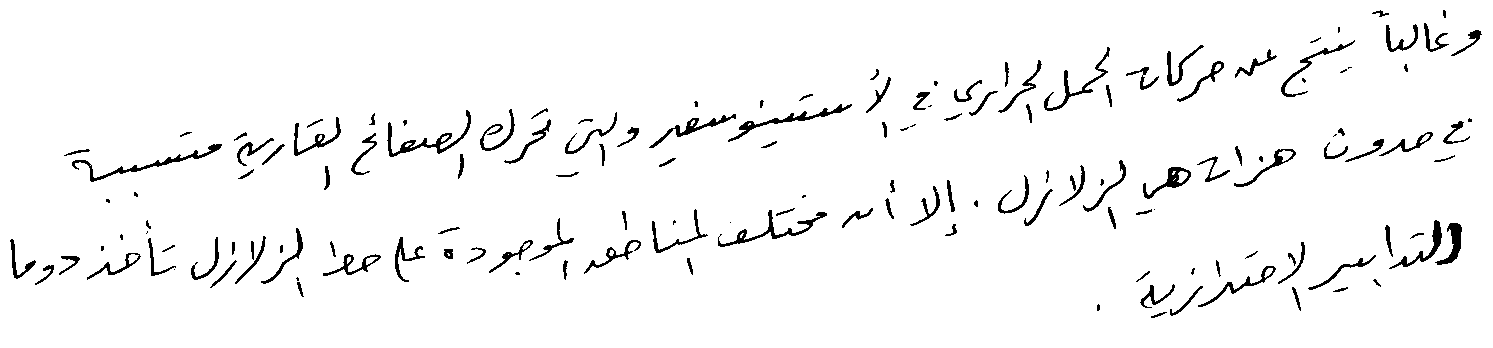 وغالباً ينتج عن حركات الحمل الحراري في الأستينوسفير والتي تحرك الصفائح القارية متسببة
في حدوث هزات هي الزلازل . إلا أن مختلف المناطق الموجودة على خط الزلازل تأخذ دوما
التدابير الاحترازية .